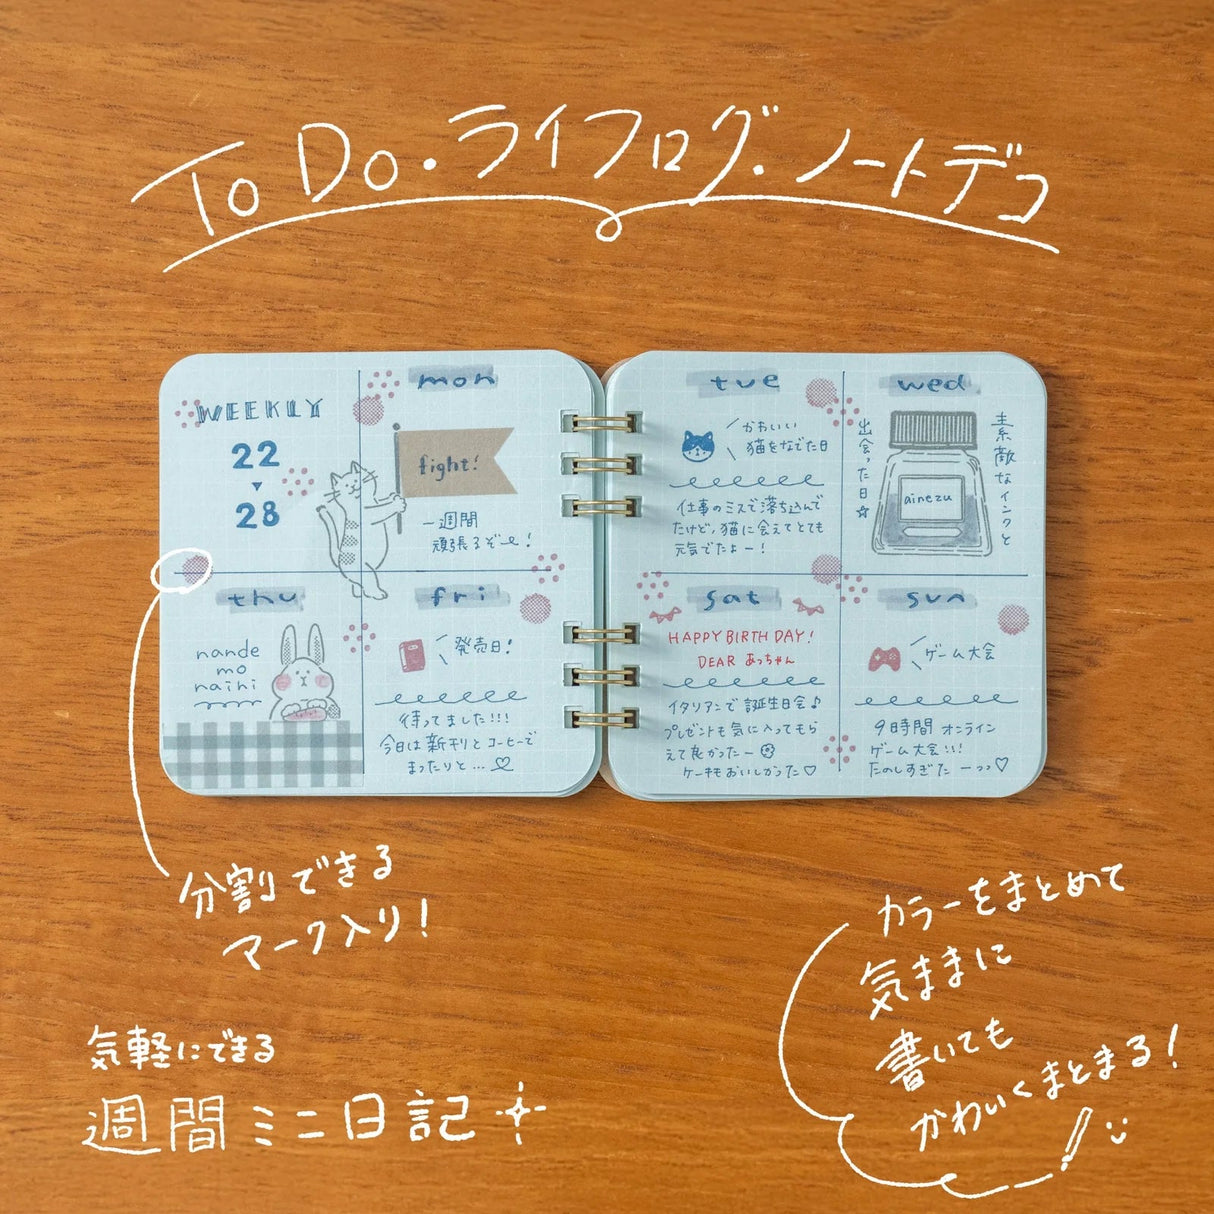 To Do・ライフログ・ノートデコ
WEEKLY
22
28
mon
fight!
一週間
頑張るぞー!
thu
nande
mo
naihi
fri
発売日!
待ってました!!!
今日は新刊とコーヒーで
まったりと…♡
tue
かわいい
猫をなでた日
仕事のミスで落ち込んで
たけど、猫に会えてとても
元気でたよー!
wed
素敵なインクと
出会った日☆
ainezu
sat
HAPPY BIRTHDAY!
DEAR あっちゃん
イタリアンで誕生日会♪
プレゼントも気に入ってもら
えて良かったー
ケーキもおいしかった♡
sun
ゲーム大会
9時間オンライン
ゲーム大会!!!
たのしすぎたーっっ♡
分割できる
マーク入り!
気軽にできる
週間ミニ日記
カラーをまとめて
気ままに
書いても
かわいくまとまる!